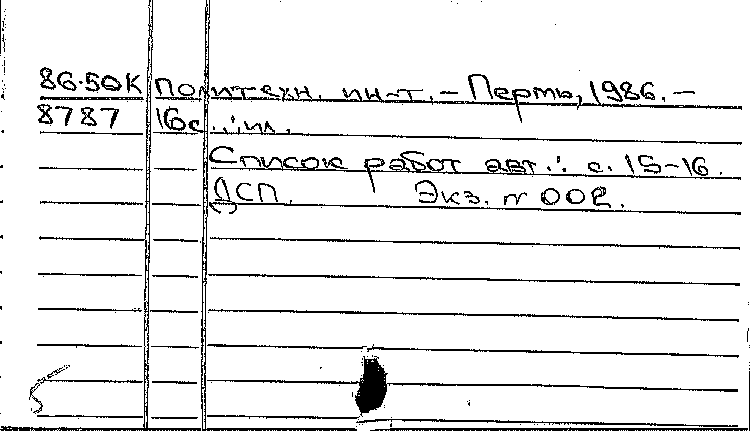 86-50К политехн. ин-т. – Пермь, 1986. –
8787 16с.: ил.
Список работ авт.: с. 15-16.
ДСП. Экз. N 002.